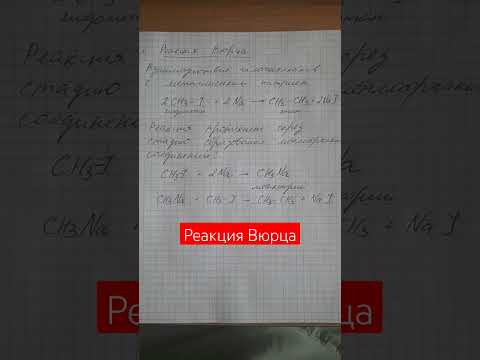 Реакция Вюрца
Взаимодействие галогеналканов
с металлическим натрием
2CH3-I + 2Na → CH3-CH3 + 2NaI
этан
Реакция протекает через
стадию образования
соединений:
CH3I + 2Na → CH3Na
CH3Na + CH3-I → CH3-CH3 + NaI
Реакция Вюрца
Реакция Вюрца